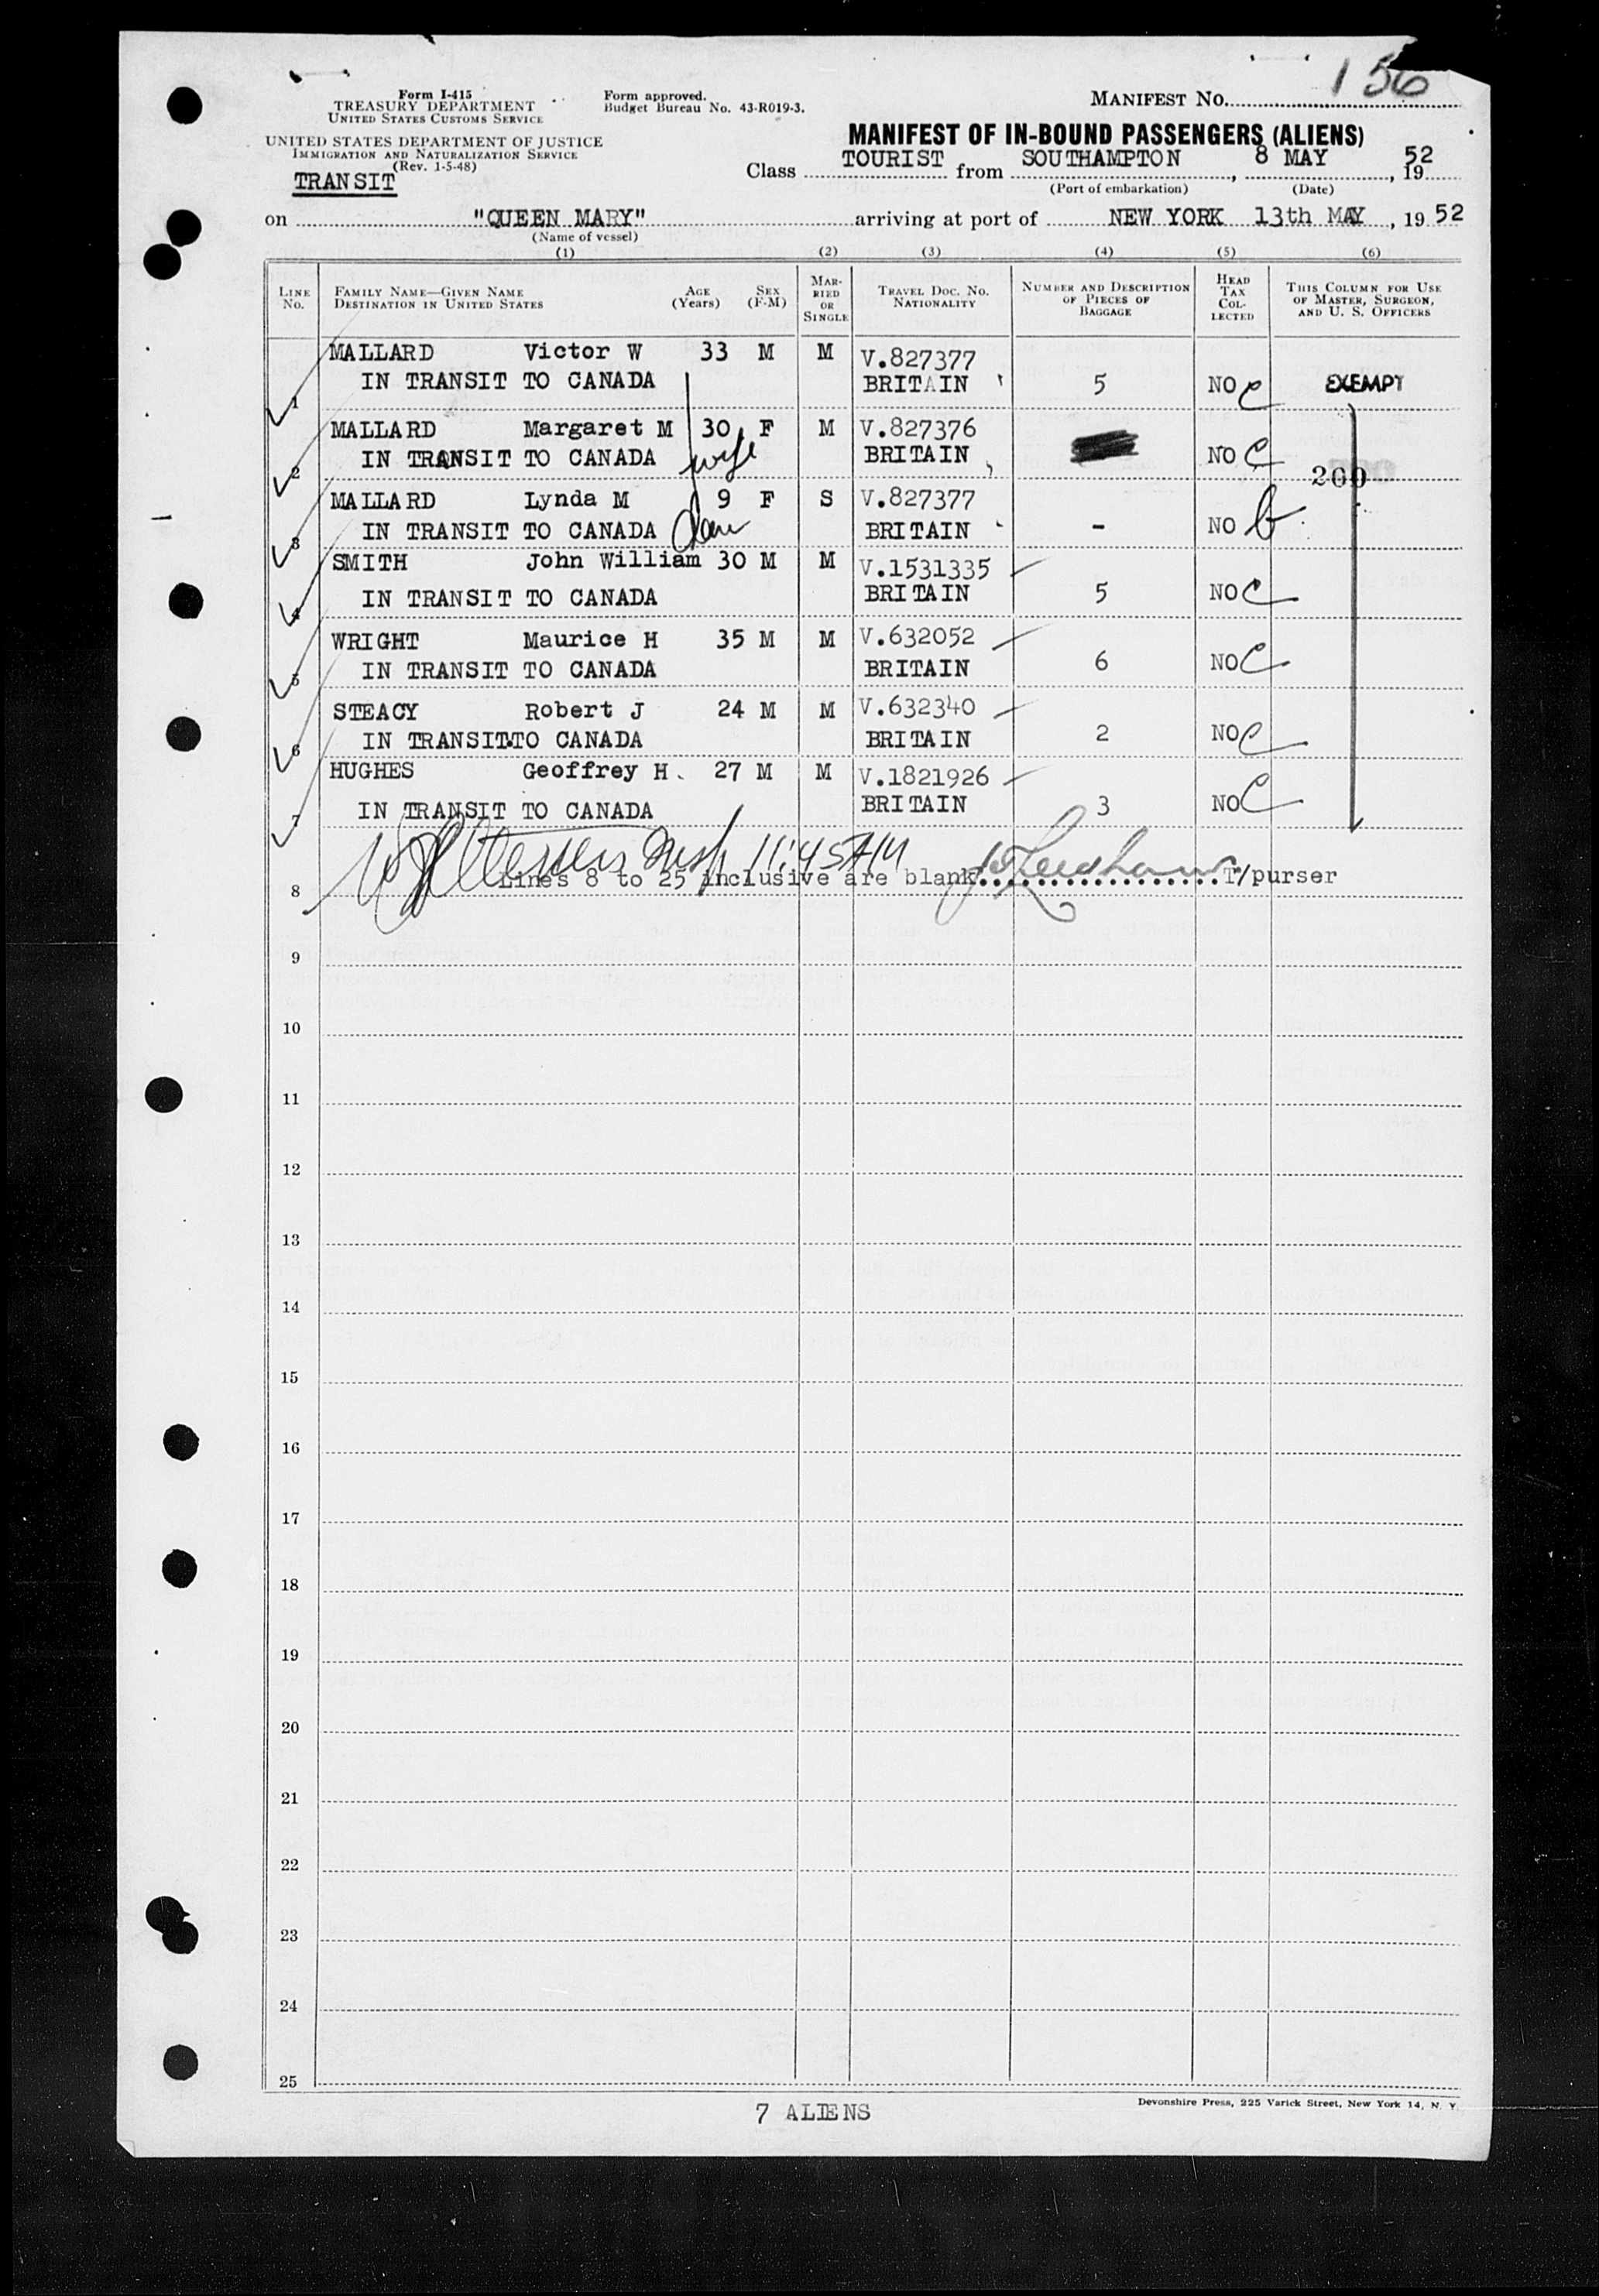 156
Form I-415
TREASURY DEPARTMENT
UNITED STATES CUSTOMS SERVICE
Form approved.
Budget Bureau No. 43-R019-3.
MANIFEST No.
UNITED STATES DEPARTMENT OF JUSTICE
IMMIGRATION AND NATURALIZATION SERVICE
(Rev. 1-5-48)
TRANSIT
MANIFEST OF IN-BOUND PASSENGERS (ALIENS)
Class TOURIST from SOUTHAMPTON, 8 MAY, 1952
(Port of embarkation) (Date)
on "QUEEN MARY" arriving at port of NEW YORK 13th MAY, 1952
(Name of vessel)
(1) (2) (3) (4) (5) (6)
LINE No. FAMILY NAME—GIVEN NAME DESTINATION IN UNITED STATES AGE (Years) SEX (F-M) MARRIED OR SINGLE TRAVEL DOC. No. NATIONALITY NUMBER AND DESCRIPTION OF PIECES OF BAGGAGE HEAD TAX COLLECTED THIS COLUMN FOR USE OF MASTER, SURGEON, AND U. S. OFFICERS
MALLARD Victor W 33 M M V.827377
1 IN TRANSIT TO CANADA BRITAIN 5 NO C EXEMPT
MALLARD Margaret M 30 F M V.827376
2 IN TRANSIT TO CANADA wife BRITAIN NO C 200
MALLARD Lynda M 9 F S V.827377
3 IN TRANSIT TO CANADA dau BRITAIN - NO b
SMITH John William 30 M M V.1531335
4 IN TRANSIT TO CANADA BRITAIN 5 NO C
WRIGHT Maurice H 35 M M V.632052
5 IN TRANSIT TO CANADA BRITAIN 6 NO C
STEACY Robert J 24 M M V.632340
6 IN TRANSIT TO CANADA BRITAIN 2 NO C
HUGHES Geoffrey H. 27 M M V.1821926
7 IN TRANSIT TO CANADA BRITAIN 3 NO C
11:45AM
8 Lines 8 to 25 inclusive are blank..................T/purser
9
10
11
12
13
14
15
16
17
18
19
20
21
22
23
24
25
7 ALIENS
Devonshire Press, 225 Varick Street, New York 14, N. Y.